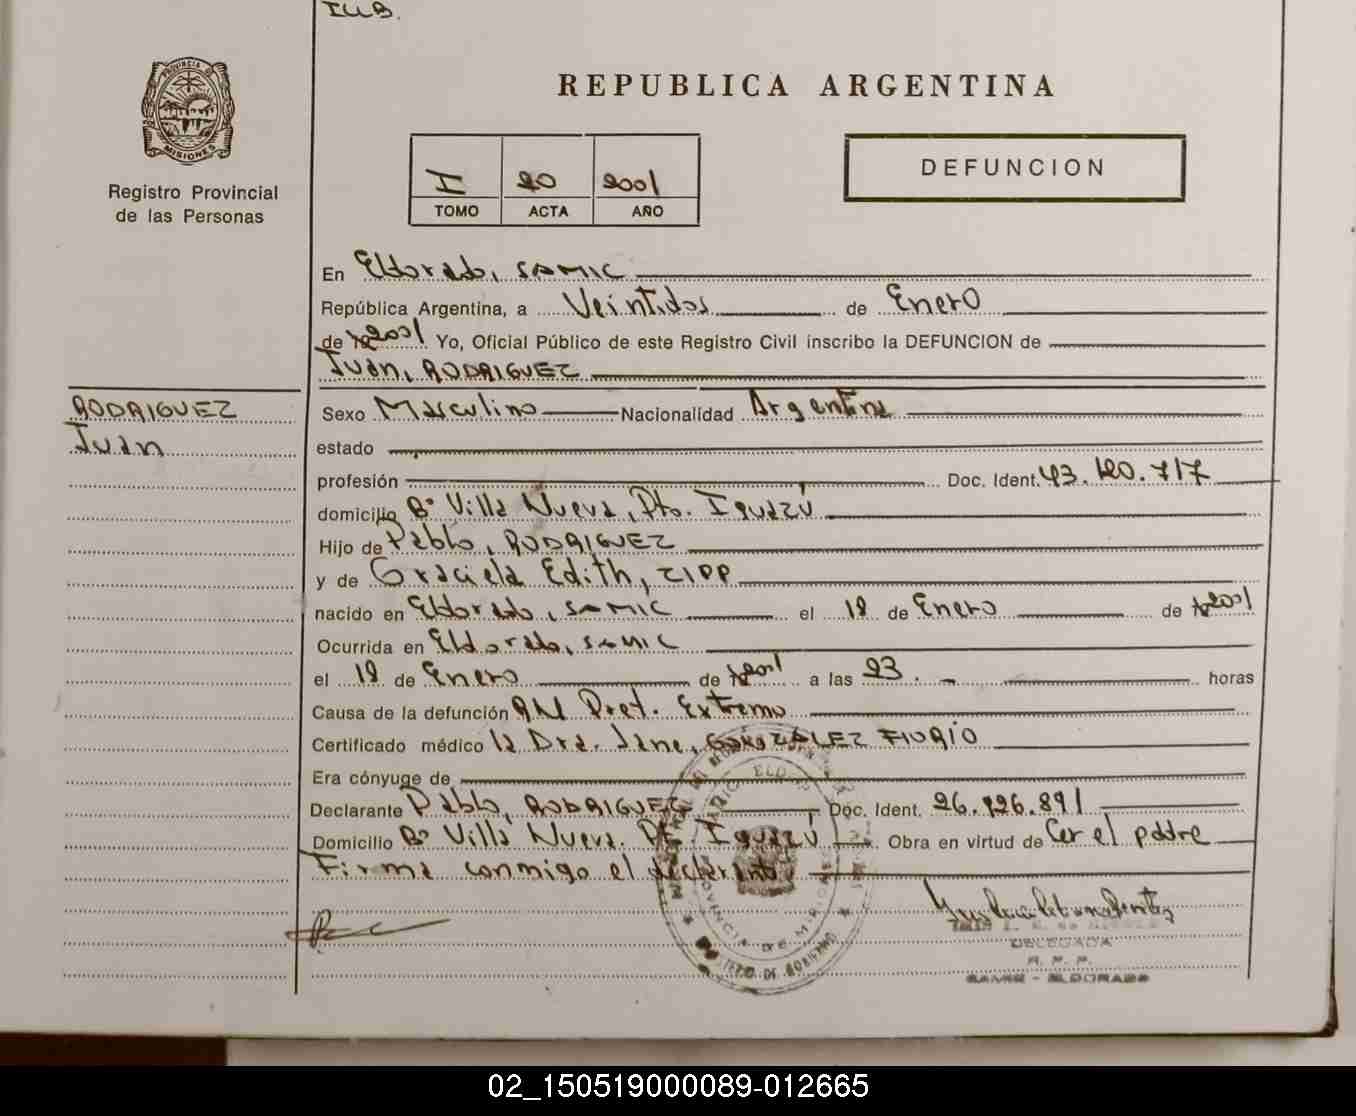 REPUBLICA ARGENTINA
PROVINCIA DE
MISIONES
Registro Provincial
de las Personas
I 20 2001
TOMO ACTA AÑO
DEFUNCION
En Eldorado, SAMIC
República Argentina, a Veintidos de Enero
de 2001 Yo, Oficial Público de este Registro Civil inscribo la DEFUNCION de
Juan, RODRIGUEZ
RODRIGUEZ
Juan
Sexo Masculino Nacionalidad Argentina
estado
profesión Doc. Ident. 43.120.717
domicilio Bº Villa Nueva, Pto. Iguazú
Hijo de Pablo, RODRIGUEZ
y de Graciela Edith, ZIPP
nacido en Eldorado, SAMIC el 18 de Enero de 2001
Ocurrida en Eldorado, SAMIC
el 18 de Enero de 2001 a las 23. horas
Causa de la defunción RN Pret. Extremo
Certificado médico la Dra. Jane, GONZALEZ FIORIO
Era cónyuge de
Declarante Pablo, RODRIGUEZ Doc. Ident. 26.126.891
Domicilio Bº Villa Nueva. Pto Iguazú Obra en virtud de Ser el padre
Firma conmigo el declarante
PROVINCIA DE MISIONES
DELEGADA
R. P. P.
SAMIC - ELDORADO
02_150519000089-012665